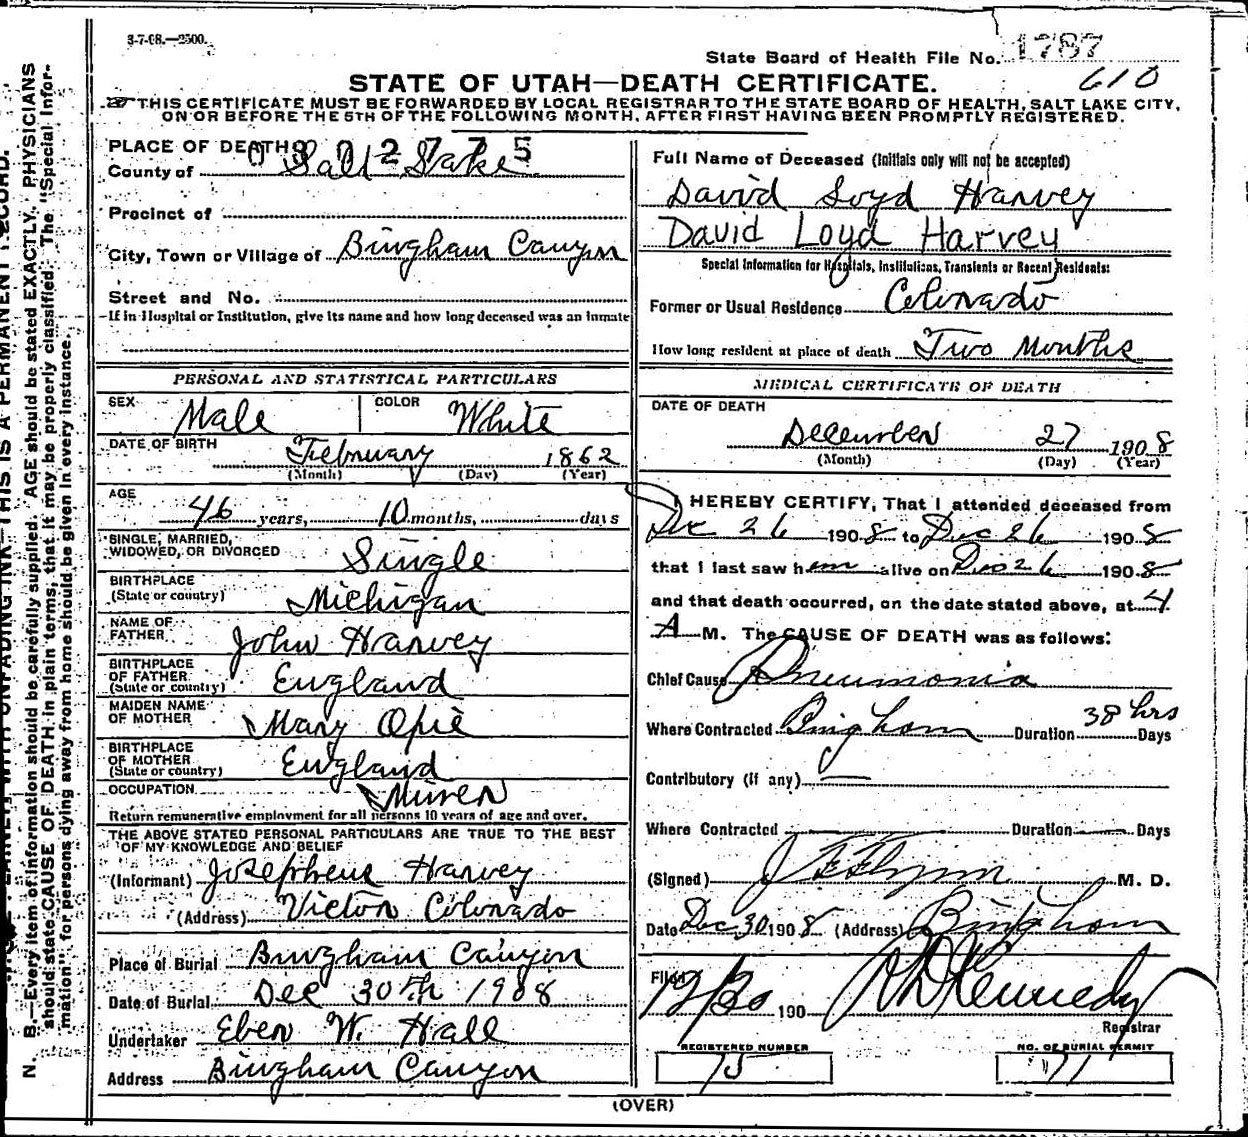 3-7-08.—2500.
State Board of Health File No. 1787
610
STATE OF UTAH—DEATH CERTIFICATE.
THIS CERTIFICATE MUST BE FORWARDED BY LOCAL REGISTRAR TO THE STATE BOARD OF HEALTH, SALT LAKE CITY,
ON OR BEFORE THE 5TH OF THE FOLLOWING MONTH, AFTER FIRST HAVING BEEN PROMPTLY REGISTERED.
N. B.—Every item of information should be carefully supplied. AGE should be stated EXACTLY. PHYSICIANS
should state CAUSE OF DEATH in plain terms, that it may be properly classified. The "Special Infor-
mation" for persons dying away from home should be given in every instance.
PLACE OF DEATH
2775
County of Salt Lake
Precinct of
City, Town or Village of Bingham Canyon
Street and No.
If in Hospital or Institution, give its name and how long deceased was an inmate
PERSONAL AND STATISTICAL PARTICULARS
SEX Male COLOR White
DATE OF BIRTH February 1862
(Month) (Day) (Year)
AGE 46 years, 10 months, days
SINGLE, MARRIED,
WIDOWED, OR DIVORCED Single
BIRTHPLACE
(State or country) Michigan
NAME OF
FATHER John Harvey
BIRTHPLACE
OF FATHER
(State or country) England
MAIDEN NAME
OF MOTHER Mary Opie
BIRTHPLACE
OF MOTHER
(State or country) England
OCCUPATION Miner
Return remunerative employment for all persons 10 years of age and over.
THE ABOVE STATED PERSONAL PARTICULARS ARE TRUE TO THE BEST
OF MY KNOWLEDGE AND BELIEF
(Informant) Josephene Harvey
(Address) Victor Colorado
Place of Burial Bingham Canyon
Date of Burial Dec 30th 1908
Undertaker Eben W. Hall
Address Bingham Canyon
Full Name of Deceased (Initials only will not be accepted)
David Loyd Harvey
David Loyd Harvey
Special Information for Hospitals, Institutions, Transients or Recent Residents:
Former or Usual Residence Colorado
How long resident at place of death Two Months
MEDICAL CERTIFICATE OF DEATH
DATE OF DEATH
December 27 1908
(Month) (Day) (Year)
I HEREBY CERTIFY, That I attended deceased from
Dec 26 1908 to Dec 26 1908
that I last saw him alive on Dec 26 1908
and that death occurred, on the date stated above, at 4
A M. The CAUSE OF DEATH was as follows:
Chief Cause Pneumonia
Where Contracted Bingham Duration 38 hrs Days
Contributory (if any)
Where Contracted Duration Days
(Signed) J E Flynn M. D.
Date Dec 30 1908 (Address) Bingham
Filed 12/30 190 Kennedy
Registrar
REGISTERED NUMBER
75
NO. OF BURIAL PERMIT
71
(OVER)